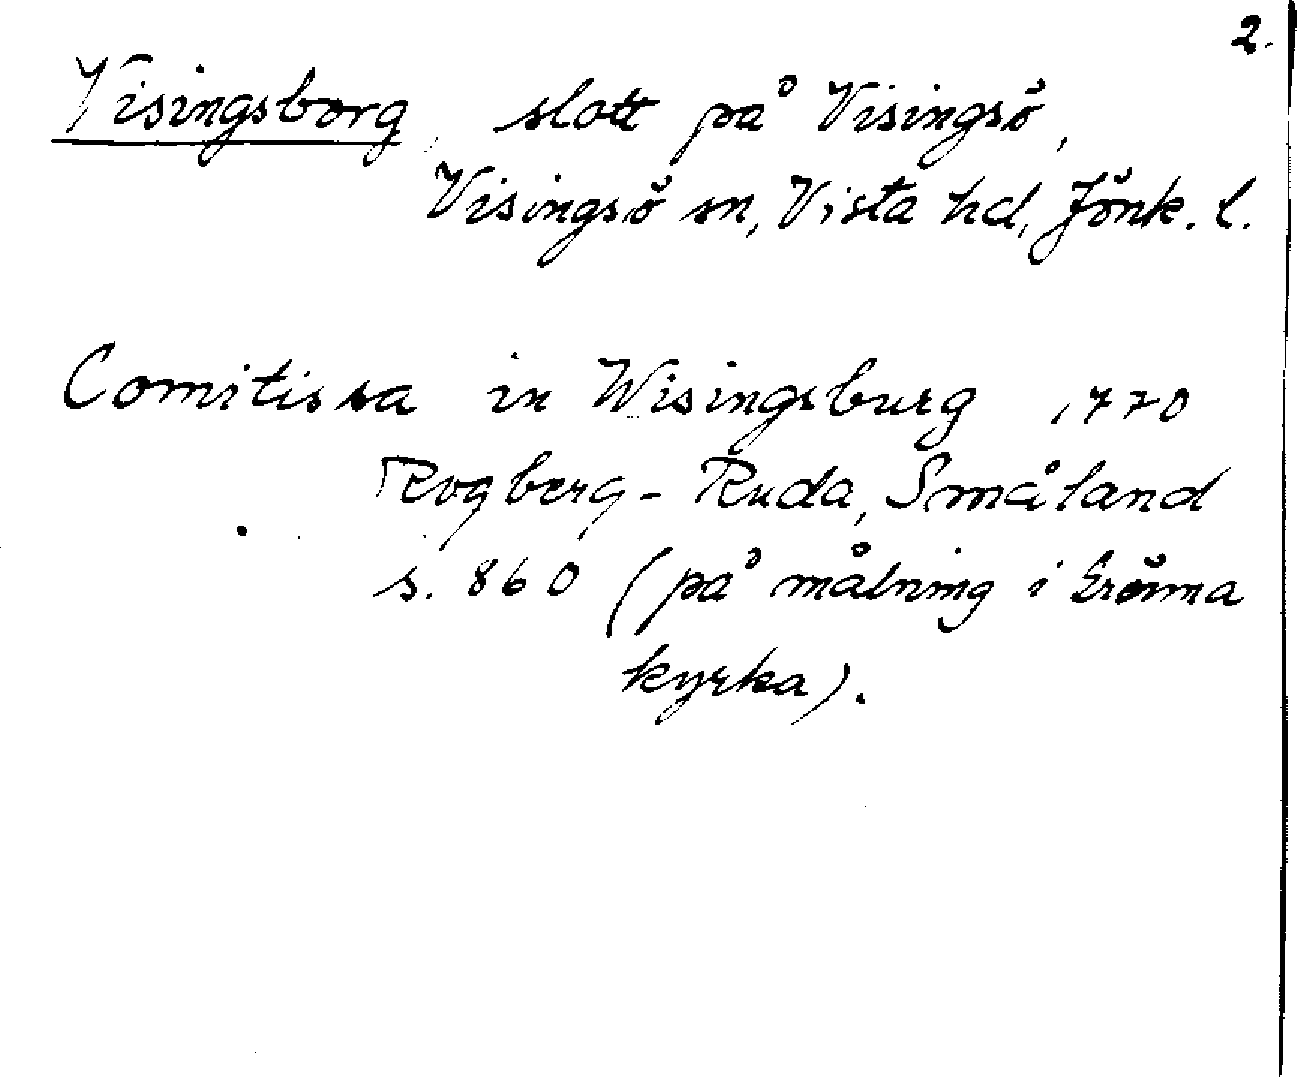 2.
Visingsborg, slott på Visingsö,
Visingsö sn, Vista hd, Jönk. l.
Comitissa in Wisingsburg 1770
Rogberg - Ruda, Småland
s. 860 (på målning i
kyrka).